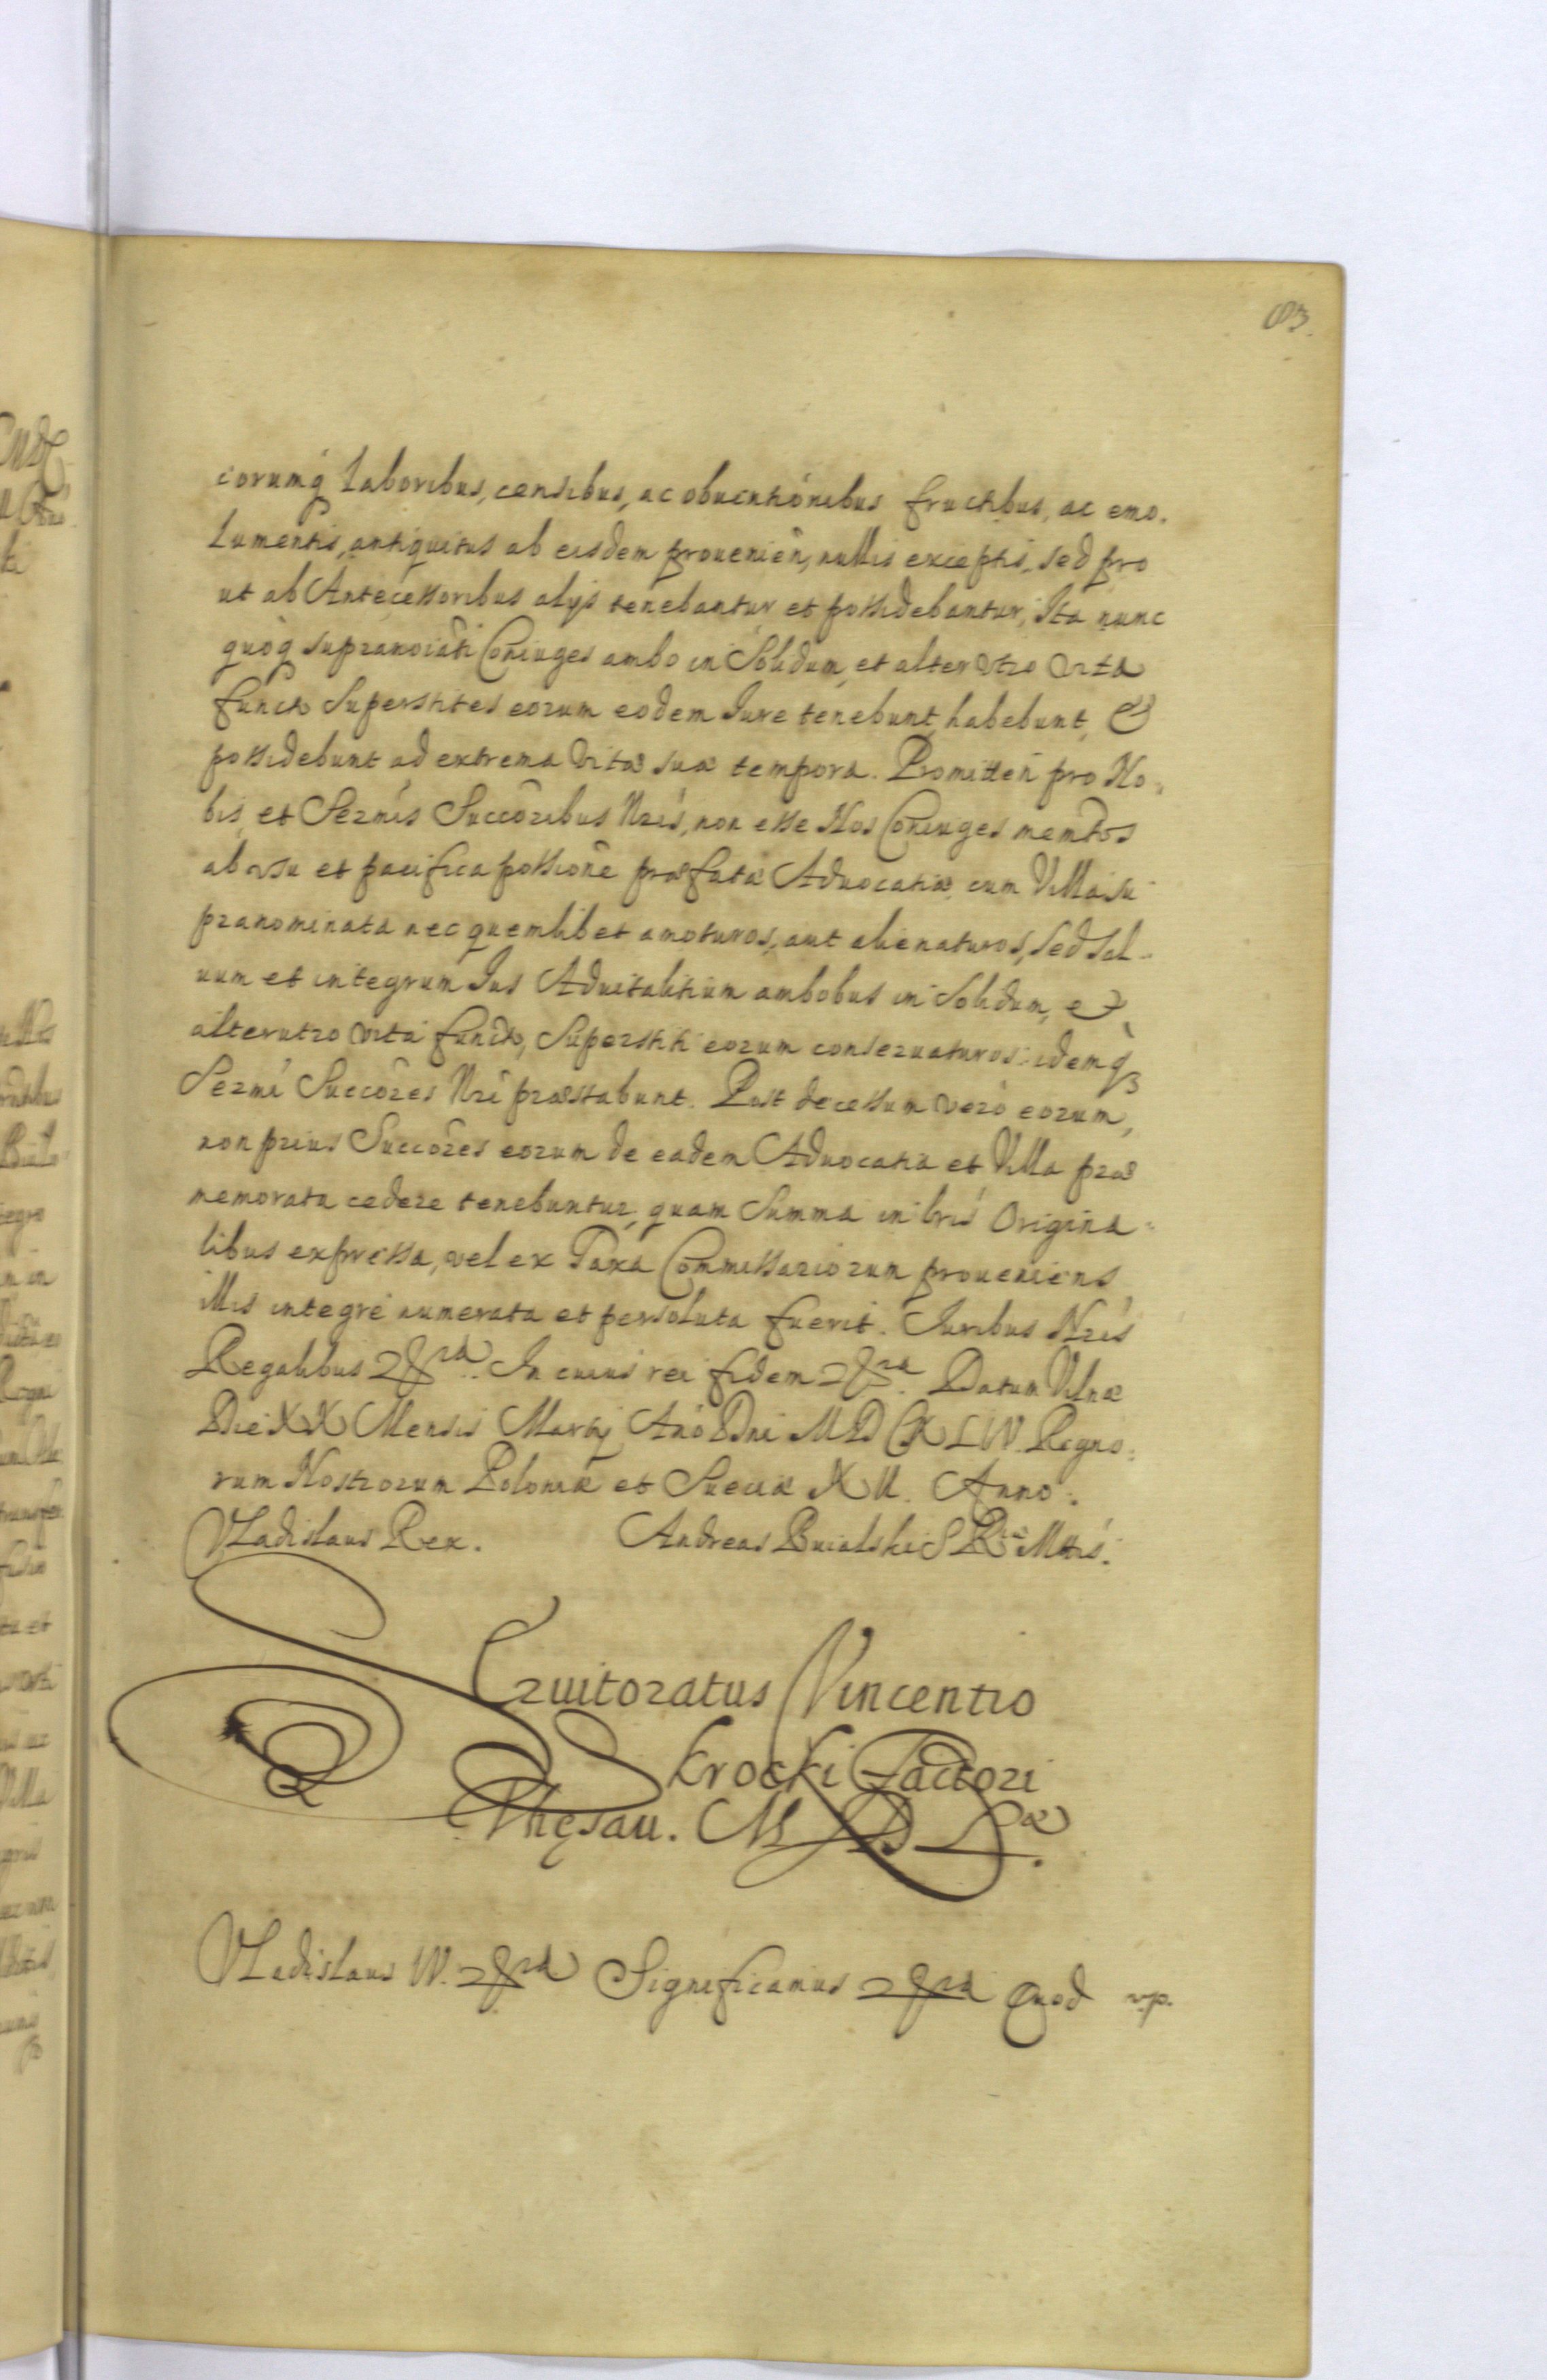 83.
eorumq́ Laboribus, censibus, ac obuentiónibus fructibus, ac emo-
lumentis, antiquitus ab eisdem prouenień, nullis exceptis, sed pro
ut ab Antecessoribus alijs tenebantur et possidebantur, Ita nunc
quoq́ supranoiati Coniuges ambo in Solidum, et alter Vtro Vita
functo Superstites eorum eodem Iure tenebunt, habebunt, &
possidebunt ad extrema Vitæ suæ tempora. Promitteń pro No-
bis, et Sermis Succoribus Nris, non esse Nos Coniuges memtos
ab vsu et pacifica possione præfatæ Aduocatiæ cum Villa su
pranominata nec quemlibet amoturos, aut alienaturos, sed Sal-
uum et integrum Ius Aduitalitium ambobus in Solidum, et
alterutro Vita functo, Superstiti eorum conseruaturos: idemq́
Sermi Succores Nri præstabunt. Post decessum vero eorum,
non prius Succores eorum de eadem Aduocatia et Villa præ
memorata cedere tenebuntur, quam Summa in lris Origina-
libus expressa, vel ex Taxa Commissariorum proueniens
illis integré numerata et persoluta fuerit. Iuribus Nris
Regalibus &ra. In cuius rei fidem &ra. Datum Vilnæ
Die XX Mensis Martij Ano Dni MDCXLIV. Regno-
rum Nostrorum Poloniæ et Sueciæ XII. Anno.
Vladislaus Rex. Andreas Buialski S Ræ Mttis.
Seruitoratus Vincentio
Krocki Factori
Thesau. M D Læ.
Vladislaus IV. &ra Significamus &ra Quod vp.